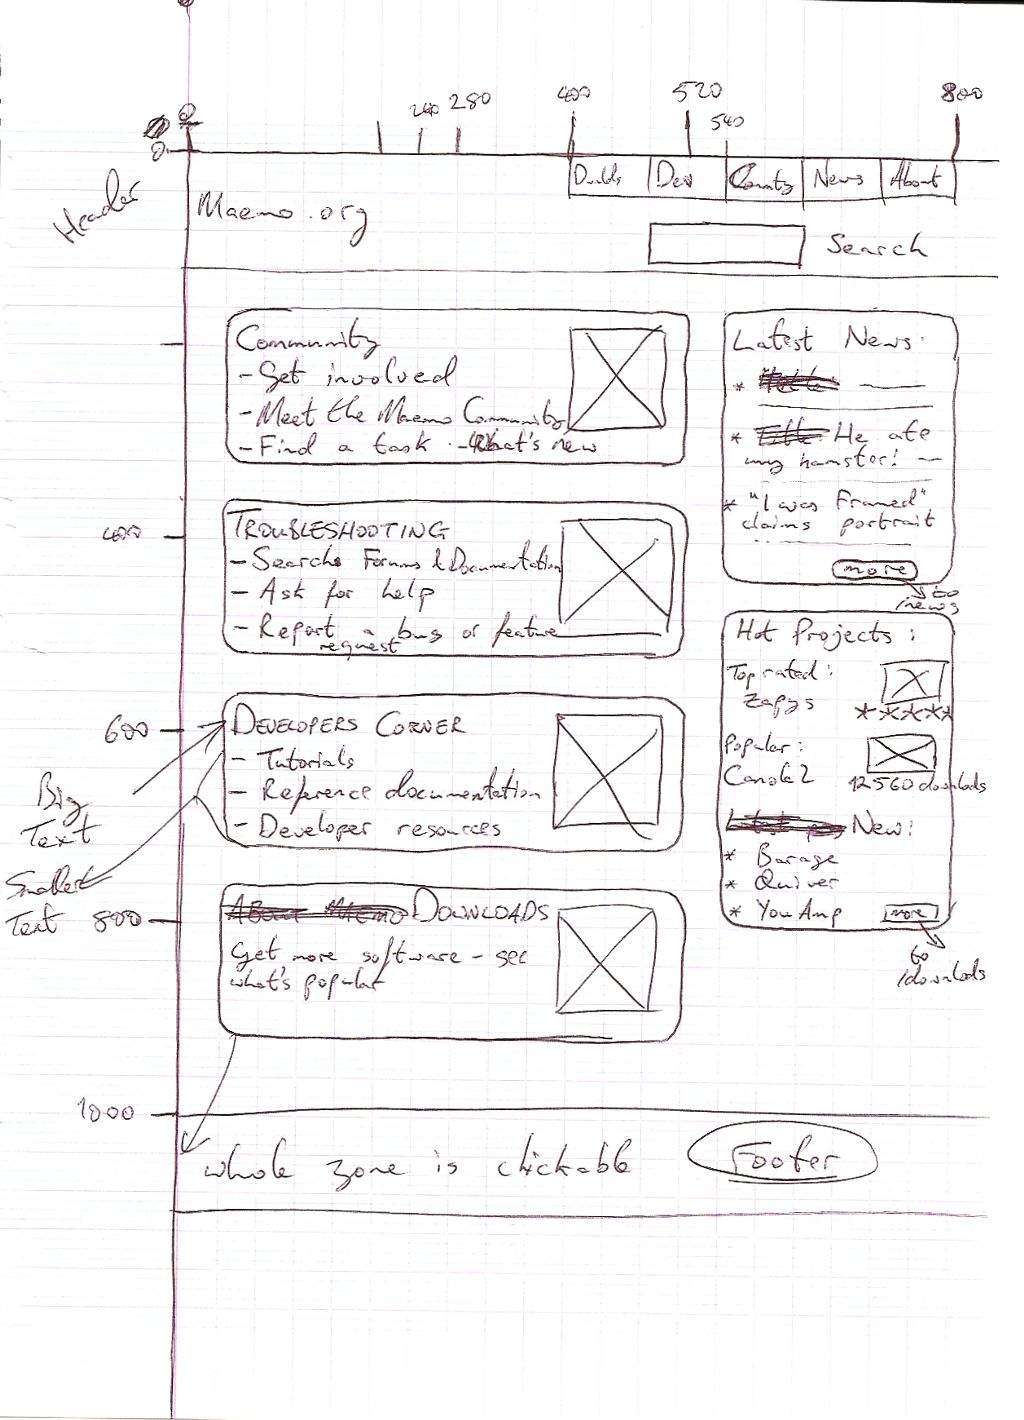 0
240
280
400
520
540
800
0
Header
Dwnlds
Dev
Comnty
News
About
Maemo.org
Search
Community
- Get involved
- Meet the Maemo Community
- Find a task - What's new
Latest News:
*
* He ate
my hamster!
* "I was Framed"
claims portrait
more
to
/news
400
TROUBLESHOOTING
- Search Forums & Documentation
- Ask for help
- Report a bug or feature
request
Hot Projects:
Top rated:
Zapys
*****
Popular:
Canola 2
12560 downloads
New:
* Barage
* Quiver
* You Amp
more
to
/downloads
600
DEVELOPERS CORNER
- Tutorials
- Reference documentation
- Developer resources
Big
Text
Smaller
Text
800
ABOUT MAEMO DOWNLOADS
Get more software - see
what's popular
1000
whole zone is clickable
Footer